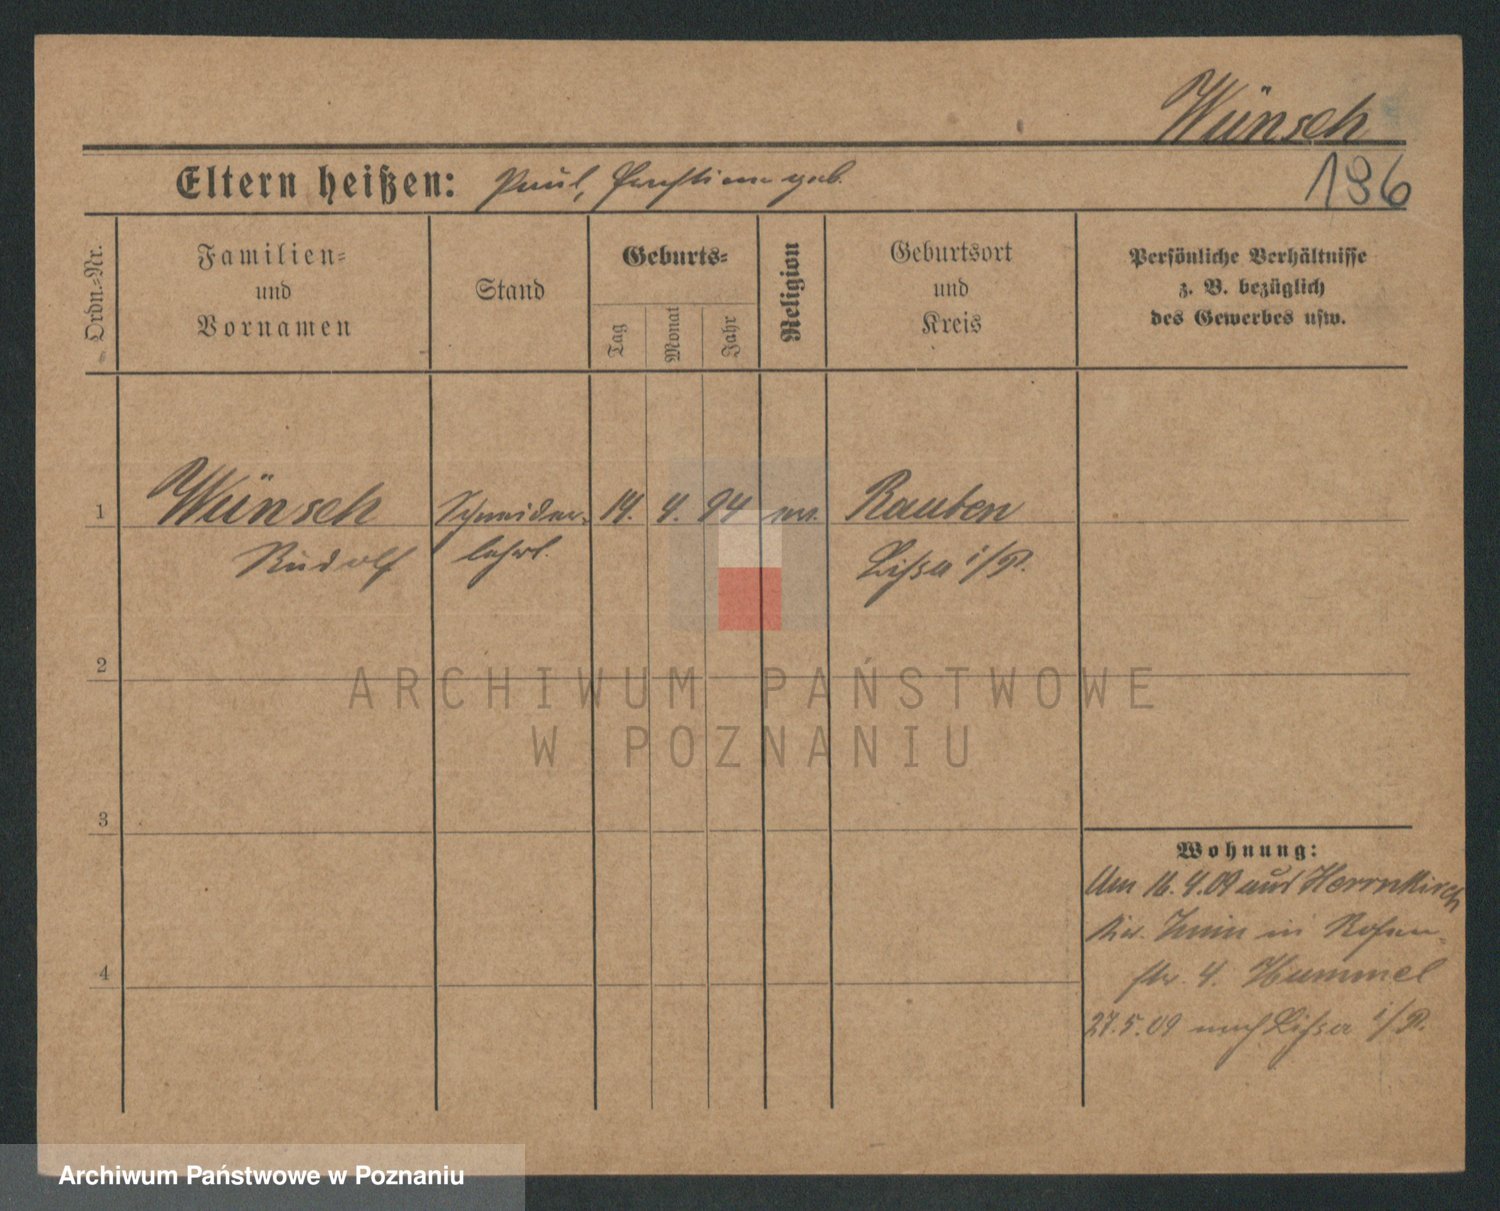 Wünsch
Eltern heißen: Paul, geb.
186
Ordn.-Nr.
Familien- und Vornamen
Stand
Geburts-
Tag
Monat
Jahr
Religion
Geburtsort und Kreis
Persönliche Verhältnisse
z. B. bezüglich
des Gewerbes usw.
1
Wünsch Schneider- 14. 4. 94 ev. Rauben
Rudolf lehrl. Lissa i/P.
2
ARCHIWUM PAŃSTWOWE
W POZNANIU
3
Wohnung:
Am 16.4.09 aus Herrnkirch
in Rosen-
str. 4. Hummel
4
27.5.09 nach Lissa i/P.
Archiwum Państwowe w Poznaniu